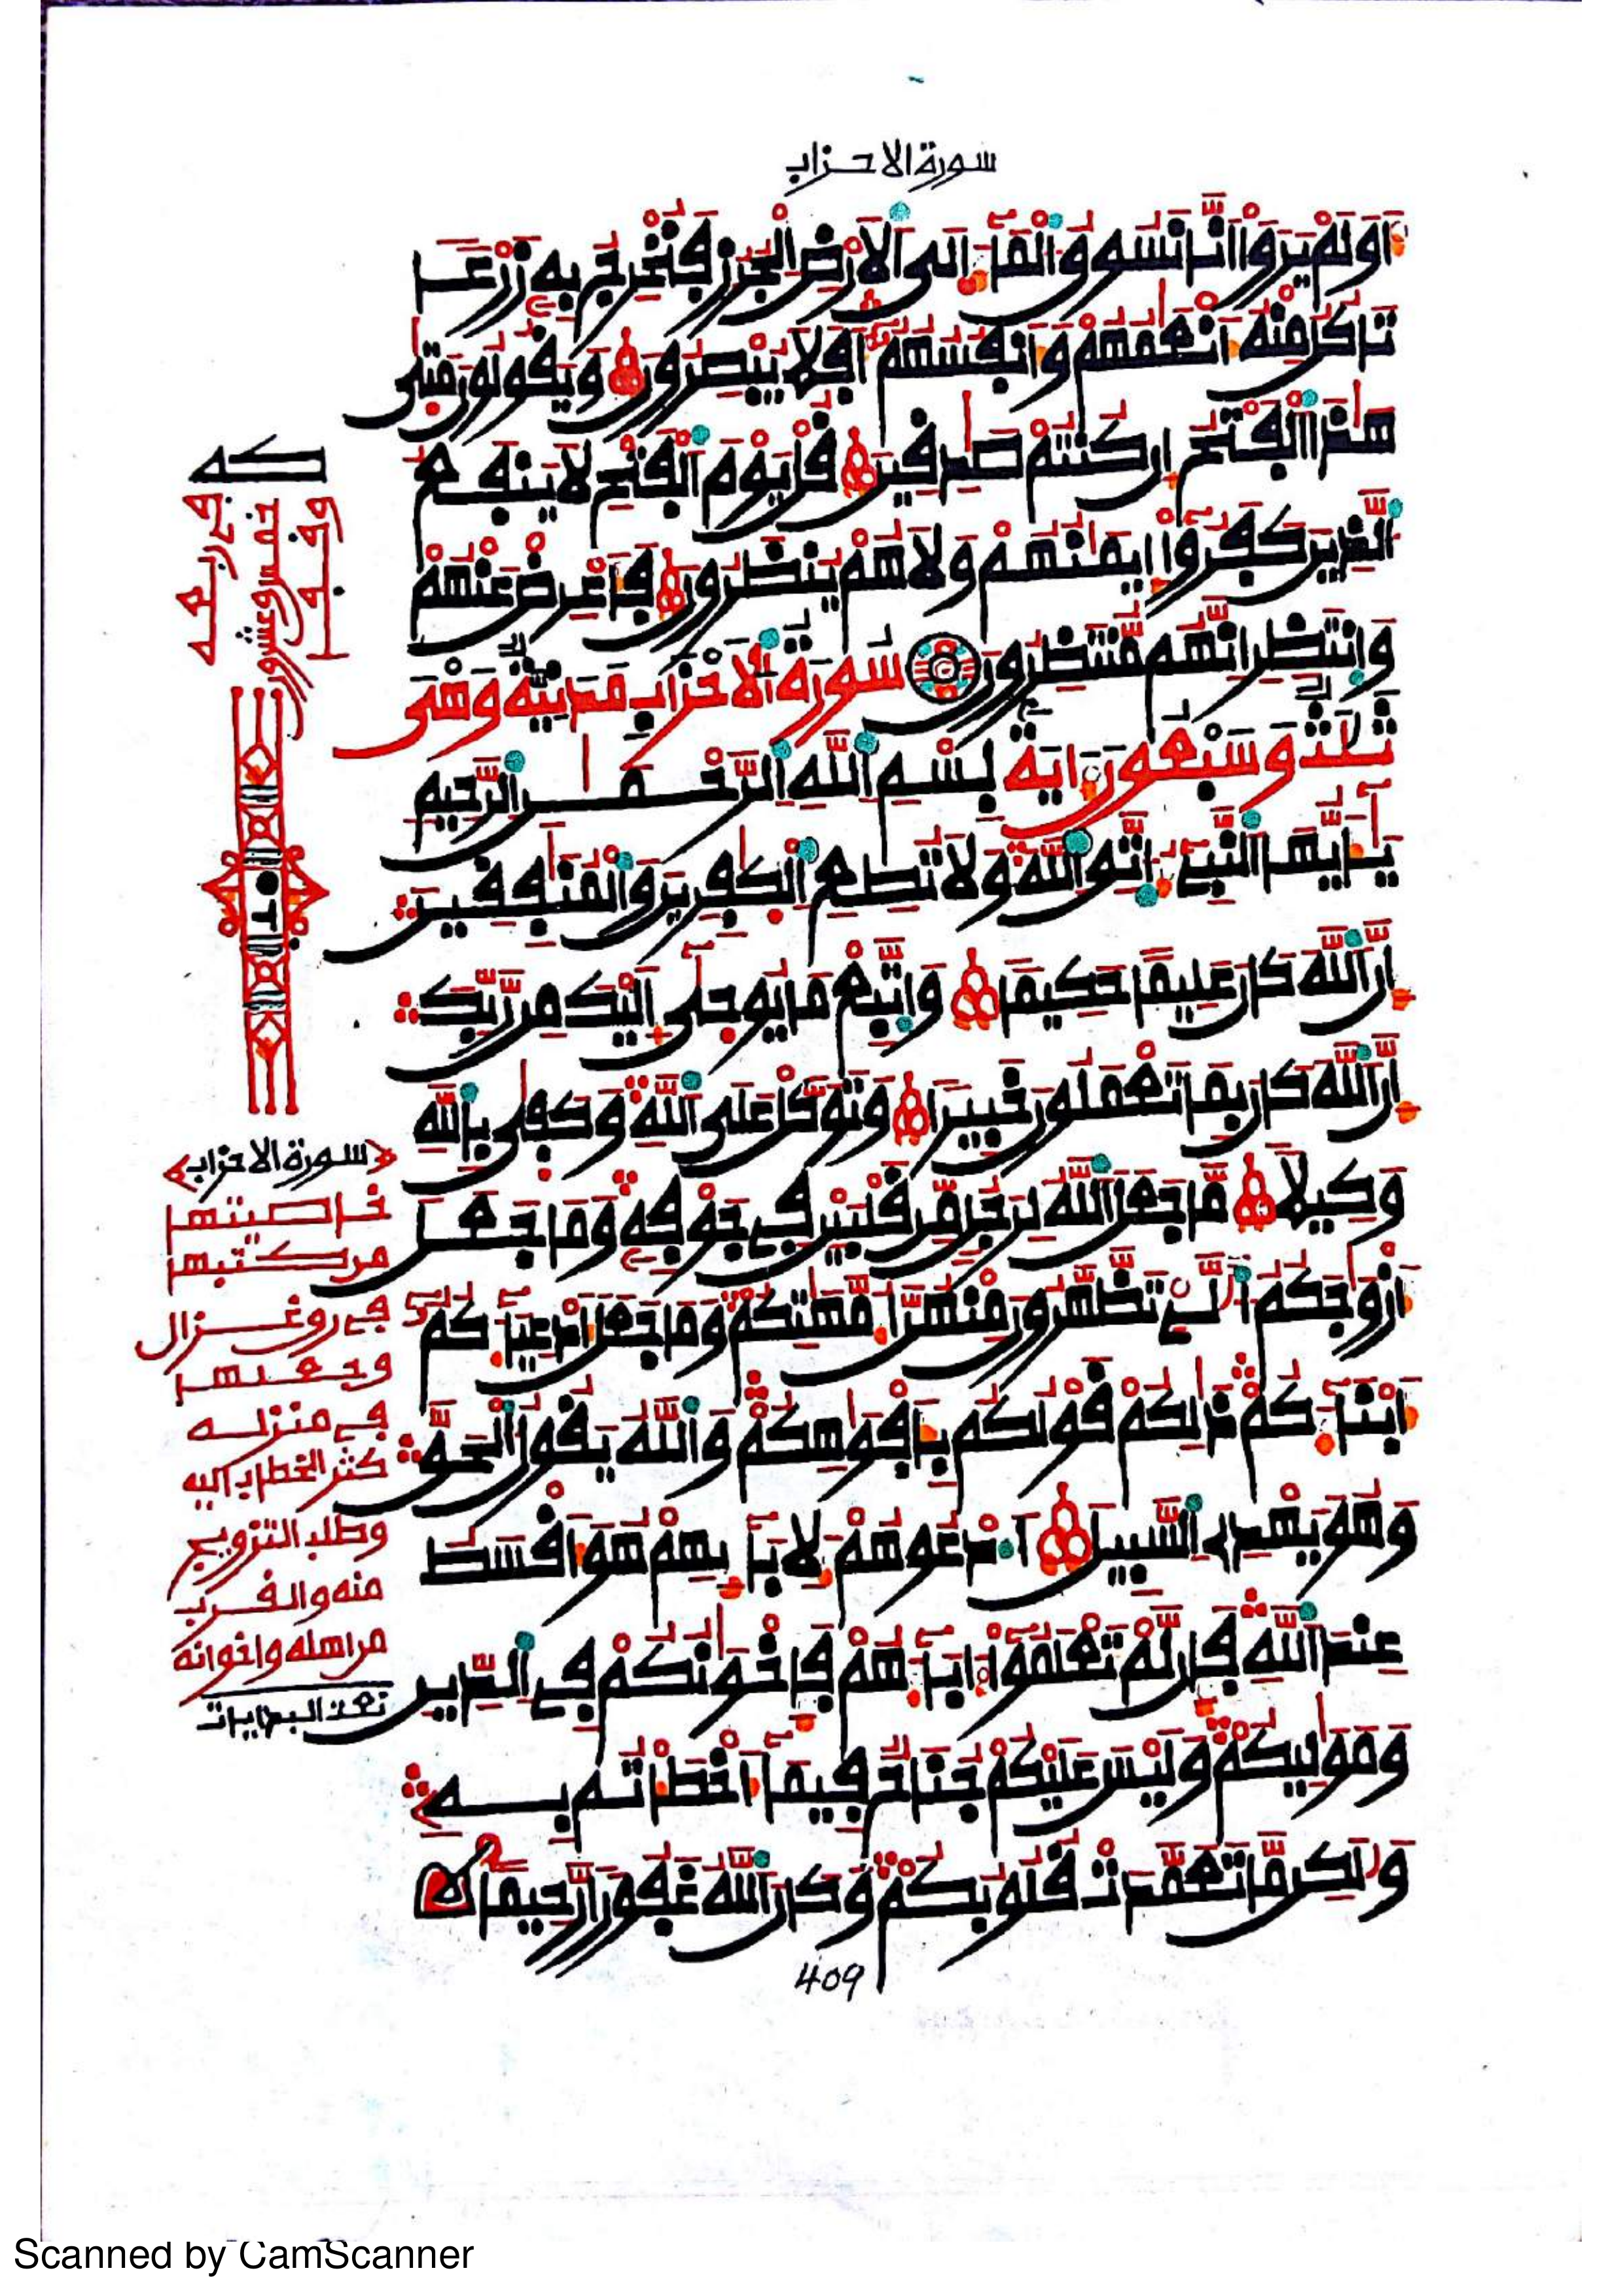 سورة الاحزاب
اَوَلَمْ يَرَوْا اَنَّا نَسُوقُ الْمَآءَ اِلَى الَارْضِ الْجُرُزِ فَنُخْرِجُ بِهِ زَرْعا
تَاكُلُ مِنْهُ اَنْعَٰمُهُمْ وَأَنفُسُهُمُ أَفَلَا يُبْصِرُونَ وَيَقُولُونَ مَتَىٰ
هَٰذَا الْفَتْحُ إِن كُنتُمْ صَٰدِقِينَ قُلْ يَوْمَ الْفَتْحِ لَا يَنفَعُ
الَّذِينَ كَفَرُوا إِيمَٰنُهُمْ وَلَا هُمْ يُنظَرُونَ فَأَعْرِضْ عَنْهُمْ
وَانتَظِرِ انَّهُم مُّنتَظِرُونَ سُورَةُ الَاحْزَابِ مَدَنِيَّةٌ وَهْىَ
ثَلَٰثٌ وَسَبْعُونَ ءَايَةً بِسْمِ اللَّهِ الرَّحْمَٰنِ الرَّحِيمِ
يَٰأَيُّهَا النَّبِيُّ اتَّقِ اللَّهَ وَلَا تُطِعِ الْكَٰفِرِينَ وَالْمُنَٰفِقِينَ
إِنَّ اللَّهَ كَانَ عَلِيمًا حَكِيمًا وَاتَّبِعْ مَا يُوحَىٰ إِلَيْكَ مِن رَّبِّكَ
إِنَّ اللَّهَ كَانَ بِمَا تَعْمَلُونَ خَبِيرًا وَتَوَكَّلْ عَلَى اللَّهِ وَكَفَىٰ بِاللَّهِ
وَكِيلًا مَّا جَعَلَ اللَّهُ لِرَجُلٍ مِّن قَلْبَيْنِ فِي جَوْفِهِ وَمَا جَعَلَ
أَزْوَٰجَكُمُ الَّٰـے تَظَّهَّرُونَ مِنْهُنَّ أُمَّهَٰتِكُمْ وَمَا جَعَلَ أَدْعِيَآءَكُمُ
أَبْنَآءَكُمْ ذَٰلِكُمْ قَوْلُكُم بِأَفْوَٰهِكُمْ وَاللَّهُ يَقُولُ الْحَقَّ
وَهُوَ يَهْدِي السَّبِيلَ ادْعُوهُمْ لِأَبَآئِهِمْ هُوَ أَقْسَطُ
عِندَ اللَّهِ فَإِن لَّمْ تَعْلَمُوا ءَابَآءَهُمْ فَإِخْوَٰنُكُمْ فِي الدِّينِ
وَمَوَٰلِيكُمْ وَلَيْسَ عَلَيْكُمْ جُنَاحٌ فِيمَا أَخْطَأْتُم بِهِ
وَلَٰكِن مَّا تَعَمَّدَتْ قُلُوبُكُمْ وَكَانَ اللَّهُ غَفُورًا رَّحِيمًا
409
فى ربعه
خمس وعشرون
وقف
سورة الاحزاب
خاصيتها
من كتبها
في روغزال
وجعلها
في منزله
كثر الخطاب اليه
وطلب التزويج
منه والقرب
من اهله واخوانه
Scanned by CamScanner